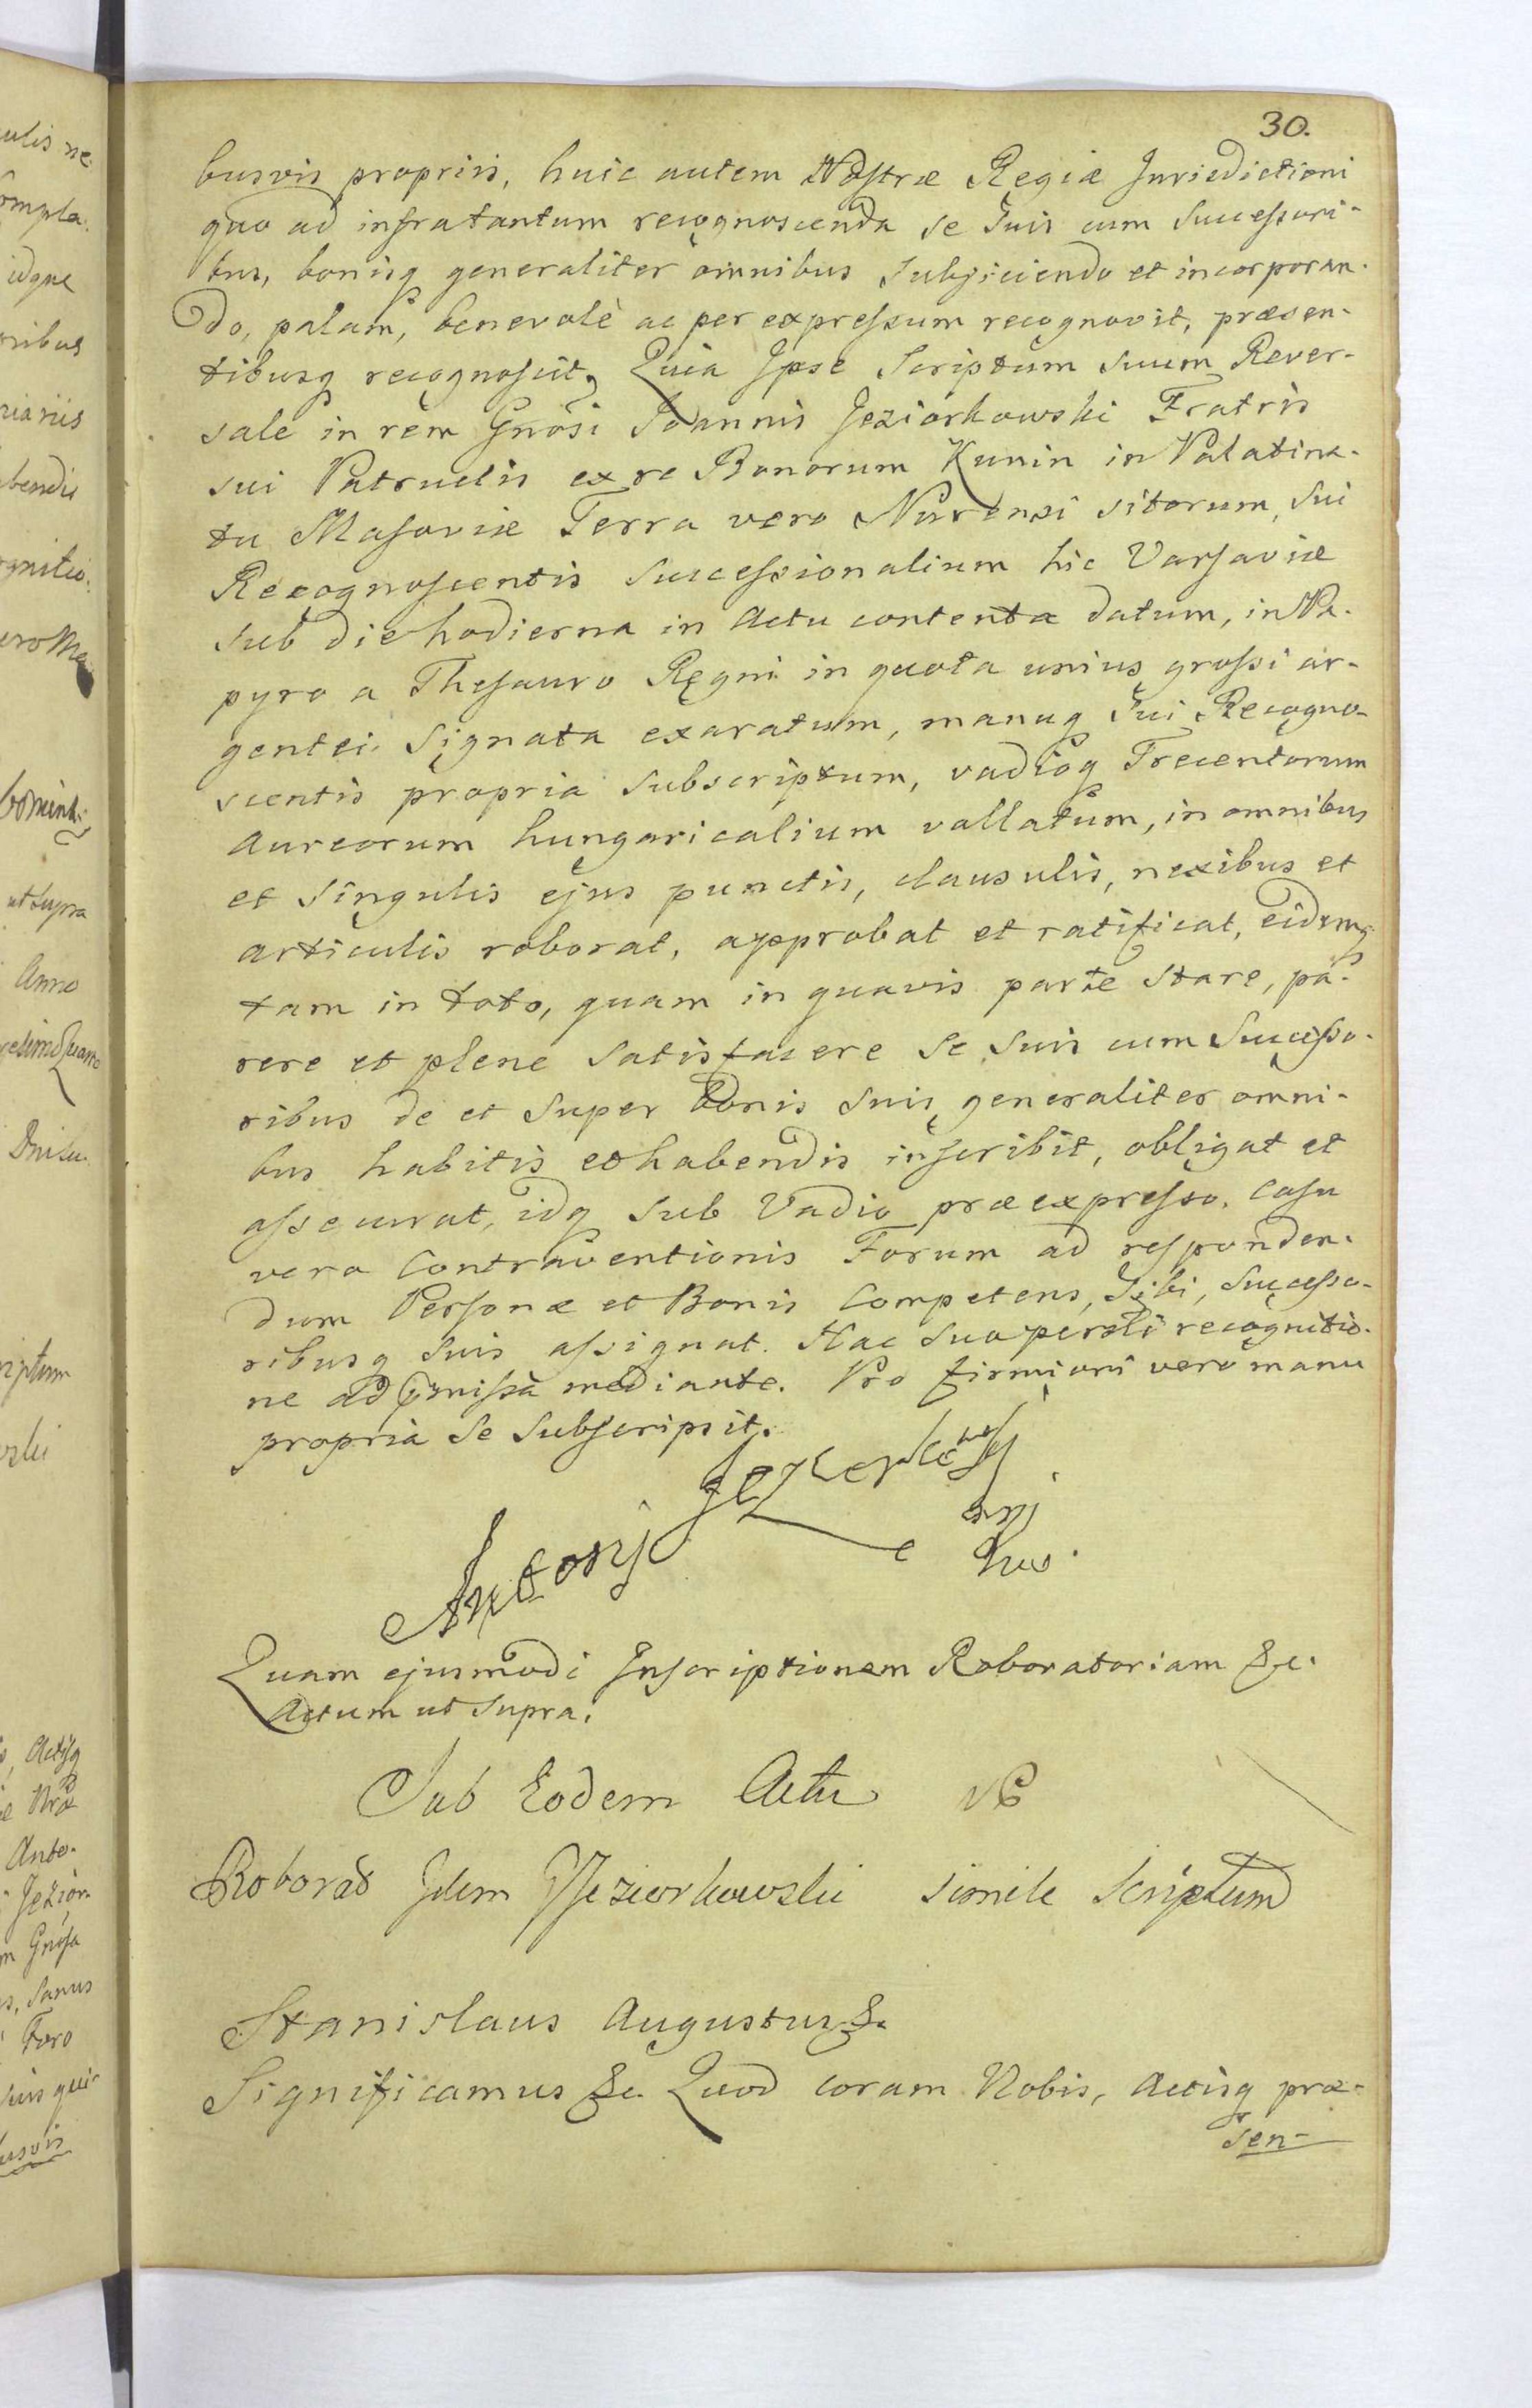 30.
busvis propriis, huic autem Nostræ Regiæ Jurisdictioni
quo ad infratantum recognoscenda se suis cum successori-
bus, bonisq generaliter omnibus subjiciendo et incorporan-
do, palam, benevolè ac per expressum recognovit, præsen-
tibusq recognoscit, Quia Ipse Scriptum suum Rever-
sale in rem Gnosi Joannis Jeziorkowski Fratris
sui Patruelis ex re Bonorum Kunin in Palatina-
tu Masoviæ Terra vero Nurensi sitorum, sui
Recognoscentis successionalium hic Varsaviæ
sub die hodierna in Actu contenta datum, in Pa-
pyro a Thesauro Regni in quota unius grossi ar-
gentei signata exaratum, manuq sui Recogno-
scentis propria subscriptum, vadioq Trecentorum
Aureorum hungaricalium vallatum, in omnibus
et singulis ejus punctis, clausulis, nexibus et
articulis roborat, approbat et ratificat, eidemq
tam in toto, quam in quavis parte stare, pa-
rere et plene satisfacere se suis cum successo-
ribus de et super bonis suis generaliter omni-
bus habitis et habendis inscribit, obligat et
assecurat, idq sub Vadio præexpresso. Casu
vero Contraventionis Forum ad responden-
dum Personæ et Bonis Competens, sibi, successo-
ribusq suis assignat. Hac sua persli recognitio-
ne ad pmissa mediante. Pro firmiori vero manu
propria se subscripsit.
Antonj
Quam ejusmodi Inscriptionem Roboratoriam &c.
Actum ut supra.
Sub Eodem Actu
Roborat Idem Jeziorkowski simile Scriptum
Stanislaus Augustus &.
Significamus &c. Quod coram Nobis, Actisq præ-
sen-
ulis ne
idque
oribus
riariis
bendis
ut supra
Anno
riptum
Actisq
Anto-
Jezior-
Gnosa
Sanus
Foro
suis qui-
busvis